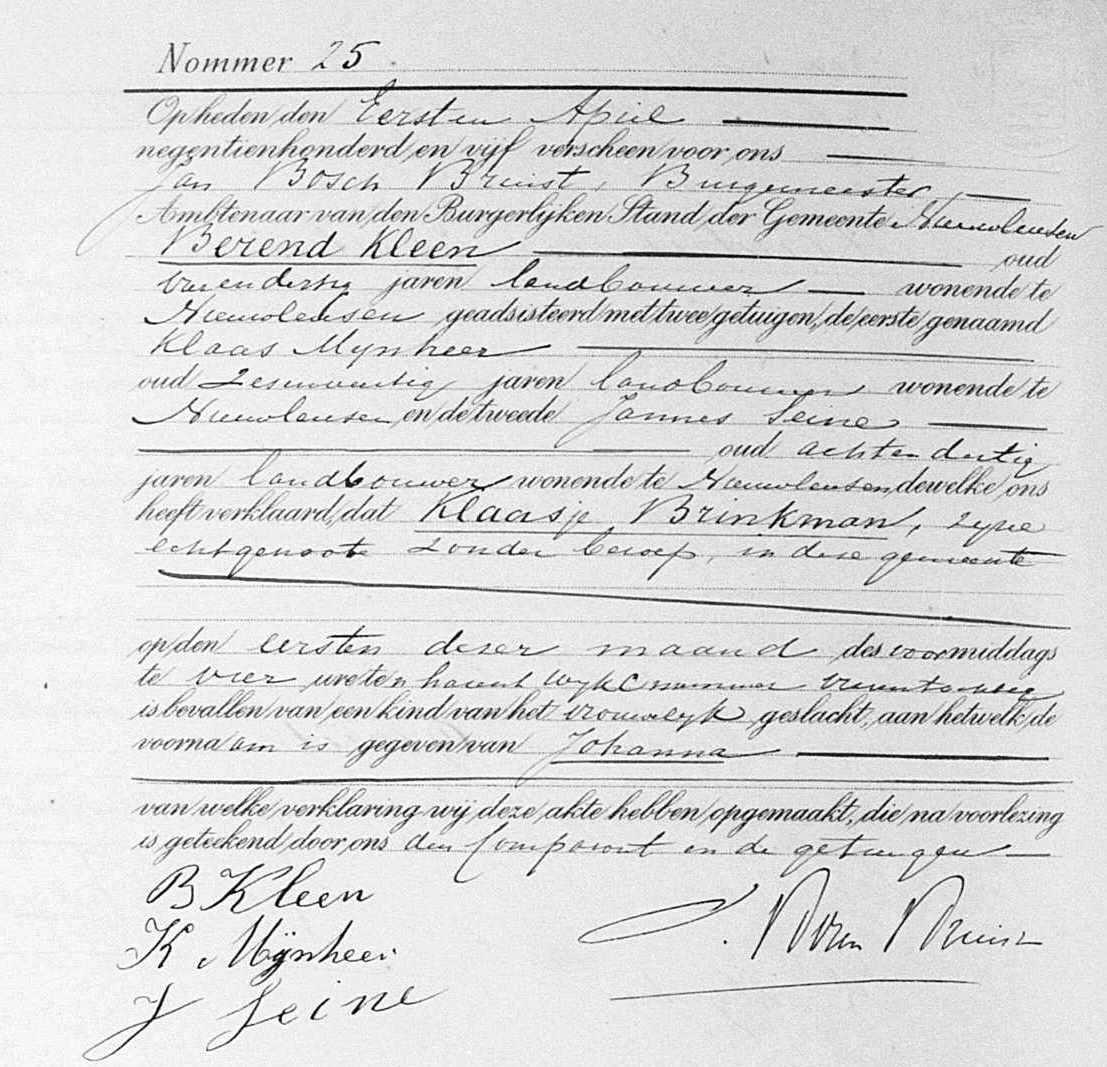 Nommer 25
Op heden den Eersten April
negentienhonderd en vijf verscheen voor ons
Jan Bosch Bruist, Burgemeester,
Ambtenaar van den Burgerlijken Stand der Gemeente Nieuwleusen
Berend Kleen oud
jaren landbouwer wonende te
Nieuwleusen geadsisteerd met twee getuigen, de eerste genaamd
Klaas Mynheer
oud jaren landbouwer wonende te
Nieuwleusen en de tweede Jannes Seine
oud achtendertig
jaren landbouwer wonende te Nieuwleusen dewelke ons
heeft verklaard, dat Klaasje Brinkman, zyne
echtgenoote zonder beroep, in deze gemeente
op den eersten dezer maand des voormiddags
te vier ure ten haren wyk C nummer
is bevallen van een kind van het vrouwelyk geslacht, aan hetwelk de
voornaam is gegeven van Johanna
van welke verklaring wij deze akte hebben opgemaakt, die na voorlezing
is geteekend door ons den Comparant en de getuigen
B Kleen
K Mijnheer
J Seine